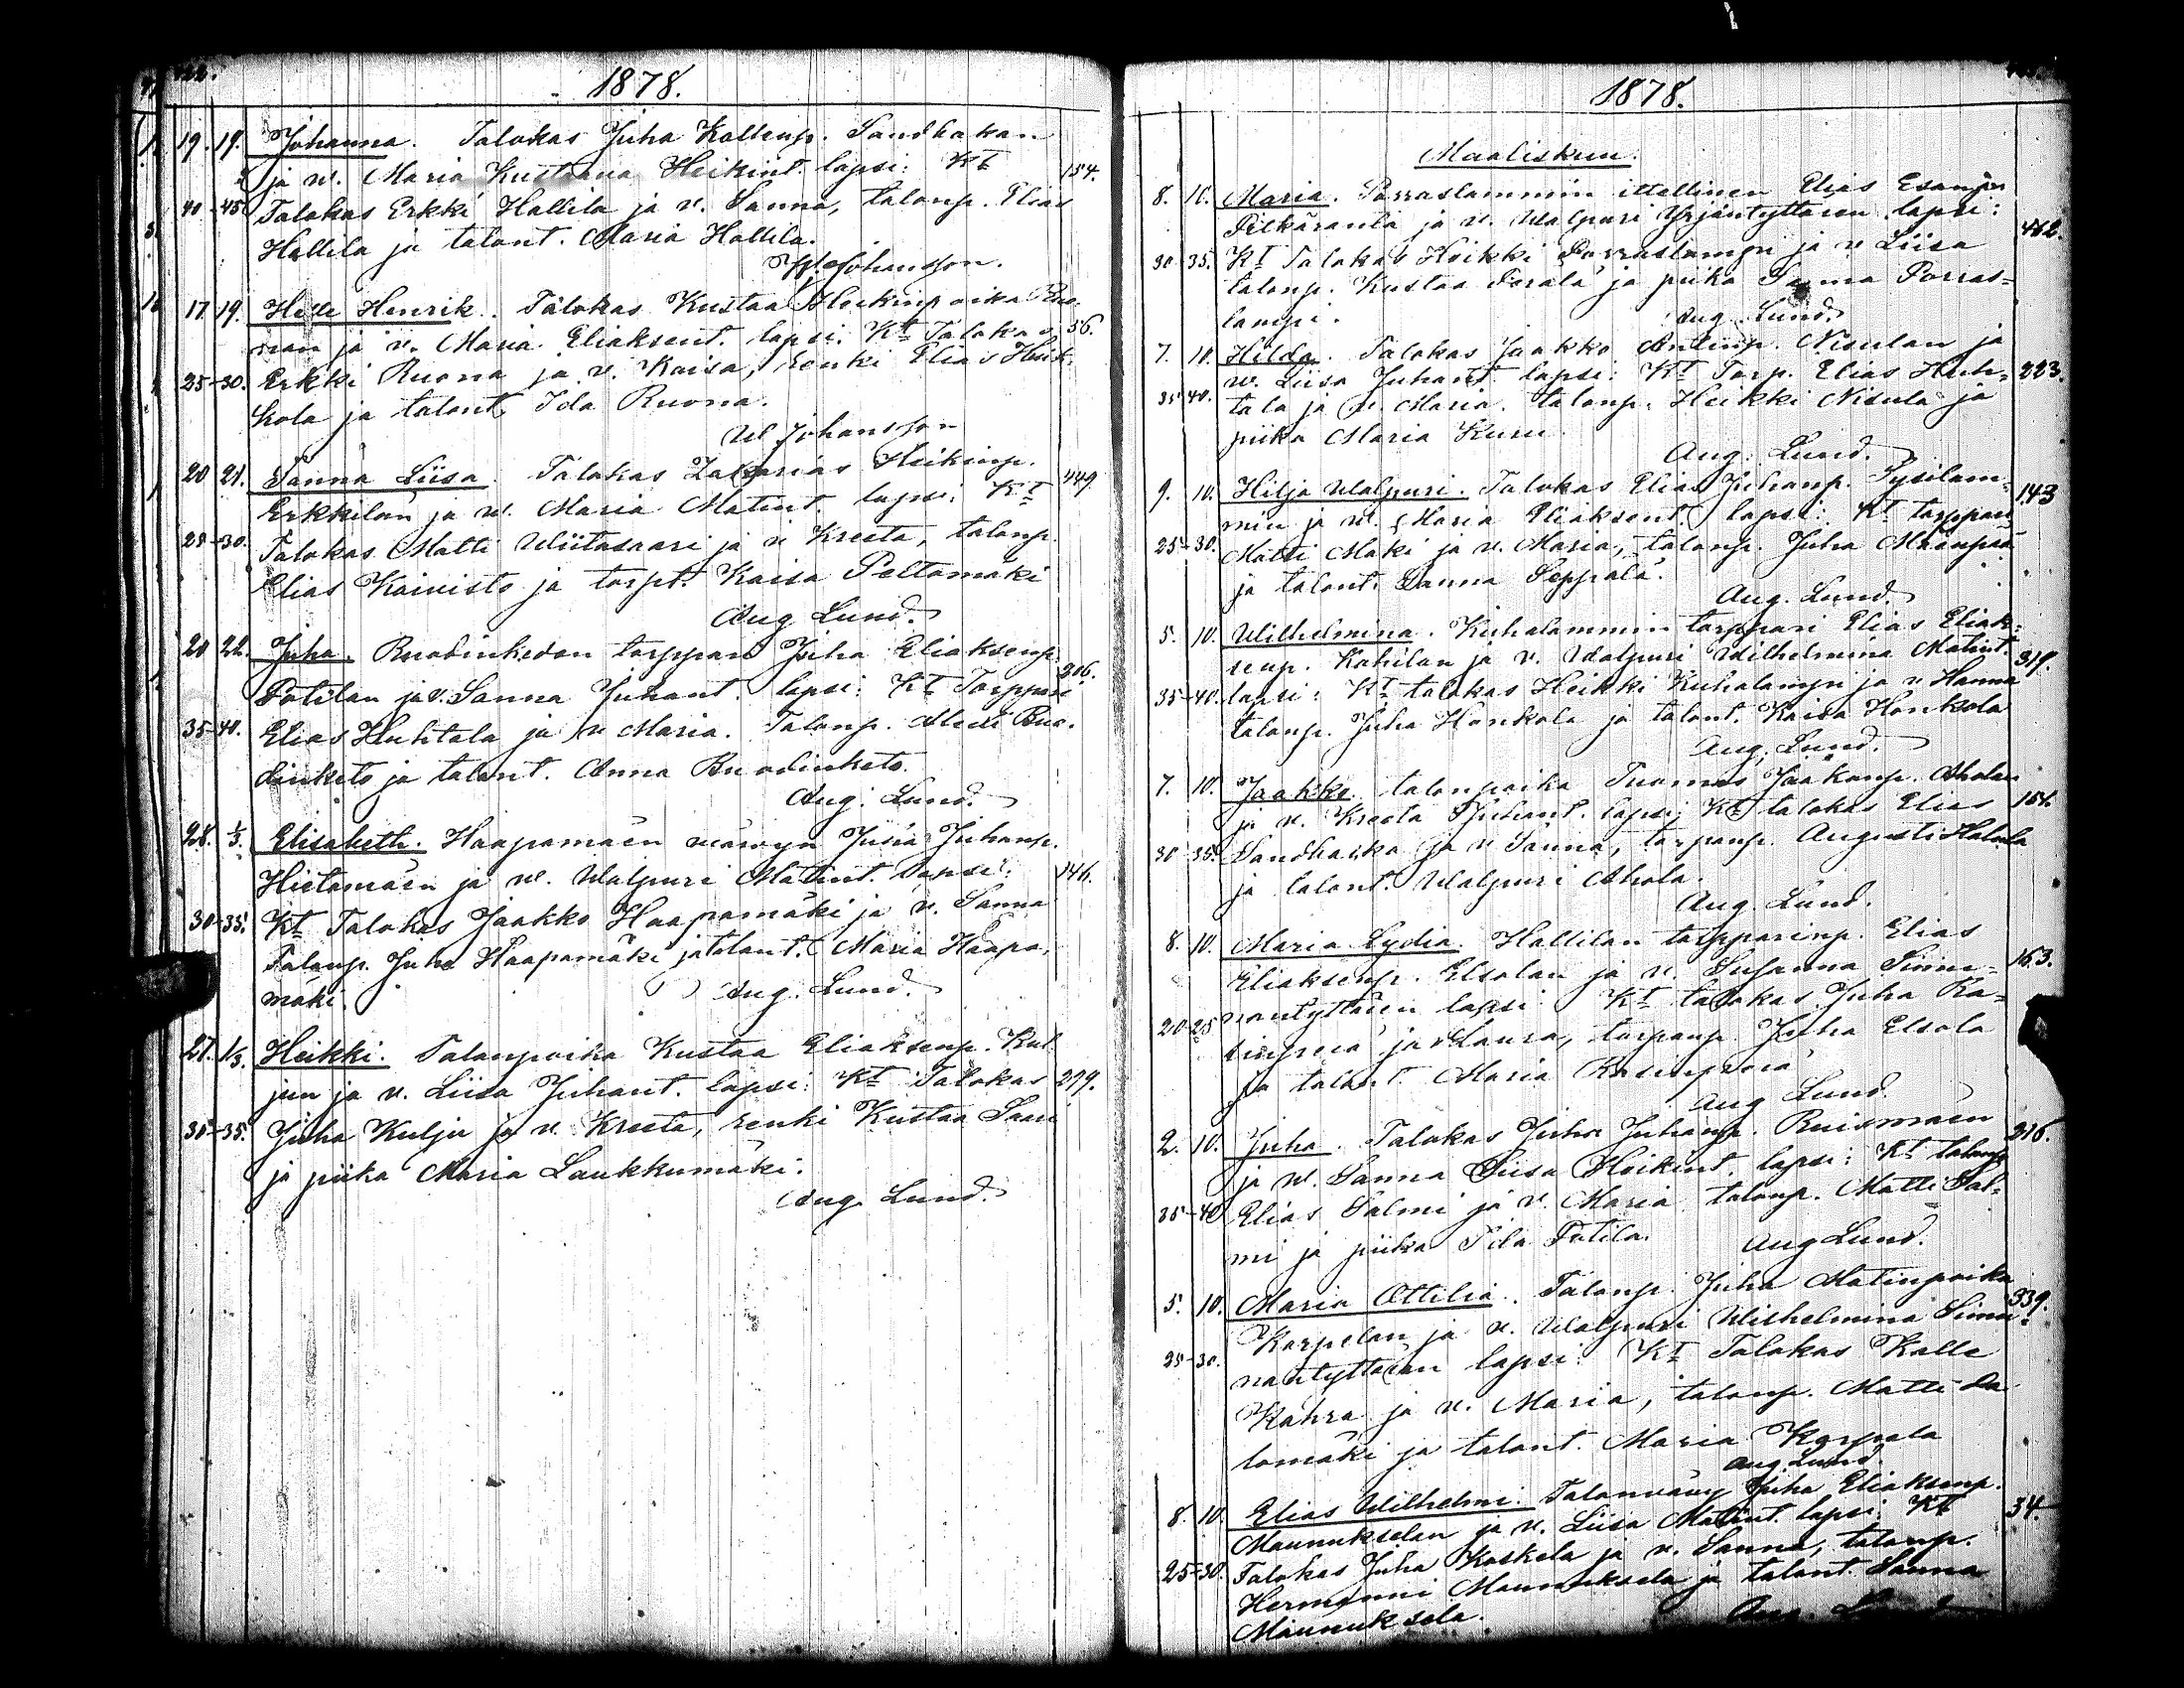 122.
1878.
19. 19. Johanna. Talokas Juha Kallenp. Sandhakan
ja w. Maria Kustaava Heikint. lapsi: Kt 154.
40-45 Talokas Erkki Hallila ja v. Sanna, talonp. Elias
Hallila ja talont. Maria Hallila.
W. Johansson.
17 19. Helle Henrik. Talokas Kustaa Heikinpoika Ruo-
nan ja v. Maria Eliaksent. lapsi. Kt Talokas 56.
25-30. Erkki Ruona ja v. Kaisa, renki Elias
kola ja talont. Ida Ruona.
W Johansson
20 21. Sanna Liisa. Talokas Zakarias Heikinp.
Erkkilän ja w. Maria Matint. lapsi: Kt 449.
25-30. Talokas Matti Wiitasaari ja v Kreeta, talonp.
Elias Koivisto ja torpt. Kaisa Peltomäki
Aug Lund.
20 22. Juha. Ruodinkedon torppari Juha Eliaksenp.
Potilan ja v. Sanna Juhant. lapsi: Kt Torppari 206.
35-40. Elias Huhtala ja v Maria. Talonp. Ruo-
dinketo ja talont. Anna Ruodinketo.
Aug. Lund.
28. 1/3. Elisabeth. Haapamäen wäwyn Juha Juhanp.
Hietamäen ja w. Walpuri Matint. lapsi: 146.
30-35. Kt Talokas Jaakko Haapamäki ja v. Sanna
Talonp. Juha Haapamäki ja talont. Maria Haapa-
mäki.
Aug. Lund.
27. 1/3. Heikki. Talonpoika Kustaa Eliaksenp. Kul-
jun ja v. Liisa Juhant. lapsi: Kt Talokas 279.
30-35. Juha Kulju ja v. Kreeta, renki Kustaa Saari
ja piika Maria Laukkumäki.
Aug. Lund.
1878.
Maaliskuu.
8. 10. Maria. Porraslammin itellinen Elias Esanp.
Pitkäranta ja v. Walpuri Yrjäntyttären lapsi: 462.
30 35. Kt Talokas Heikki Porraslampi ja v Liisa
talonp. Kustaa Perälä ja piika Sanna Porras-
lampi.
Aug. Lund.
7. 10. Hilda. Talokas Jaakko Antinp. Nisulan ja
w. Liisa Juhant. lapsi: Kt Torp. Elias Huh- 223.
35 40. tala ja v. Maria. talonp. Heikki Nisula ja
piika Maria Kuru
Aug. Lund.
9. 10. Hilja Walpuri. Talokas Elias Juhanp. Pysilam-
min ja w. Maria Eliaksent. lapsi: Kt torppari 143
25-30. Matti Mäki ja v. Maria, talonp. Juha Mäenpää
ja talont. Sanna Seppälä.
Aug. Lund.
5. 10. Wilhelmina. Kuhalammin torppari Elias Eliak-
senp. Kahilan ja v. Walpuri Wilhelmina Matint. 319.
35-40. lapsi: Kt talokas Heikki Kuhalampi ja v Hanna
talonp. Juha Honkola ja talont. Kaisa Honkola
Aug. Lund.
7. 10. Jaakko. talonpoika Tuomas Jaakonp. Aholan
ja v. Kreeta Juhant. lapsi; Kt talokas Elias 154.
30-35. Sandhakka ja v Sanna, torpanp. Augusti
ja talont. Walpuri Ahola.
Aug. Lund.
8. 10. Maria Lydia. Hallilan torpparinp. Elias
Eliaksenp. Elsolan ja v. Susanna Simu- 163.
20-25 nantyttären lapsi: Kt talokas Juha Ra-
sinperä ja v Laura, torpanp. Juha Elsola
ja talont. Maria Rasinperä
Aug Lund.
2. 10. Juha. Talokas Juha Juhanp. Ruismäen 216.
ja w. Sanna Liisa Heikint. lapsi: Kt talonp
35-40 Elias Salmi ja v. Maria talonp. Matti Sal-
mi ja piika Potila.
Aug Lund.
5. 10. Maria Ottilia. Talonp. Juha Matinpoika
Karpelan ja v. Walpuri Wilhelmina Simu- 339.
25-30. nantyttären lapsi: Kt Talokas Kalle
Kahra ja v. Maria, talonp. Matti
lomäki ja talont. Maria Karpela
Aug. Lund.
8. 10. Elias Wilhelmi. Talonwäwy Juha Eliaksenp.
Maunukselan ja v. Liisa Matint. lapsi: Kt 34.
25-30. Talokas Juha Koskela ja v. Sanna, talonp.
Hermanni Maunuksela ja talont. Sanna
Maunuksela.
Aug. Lund